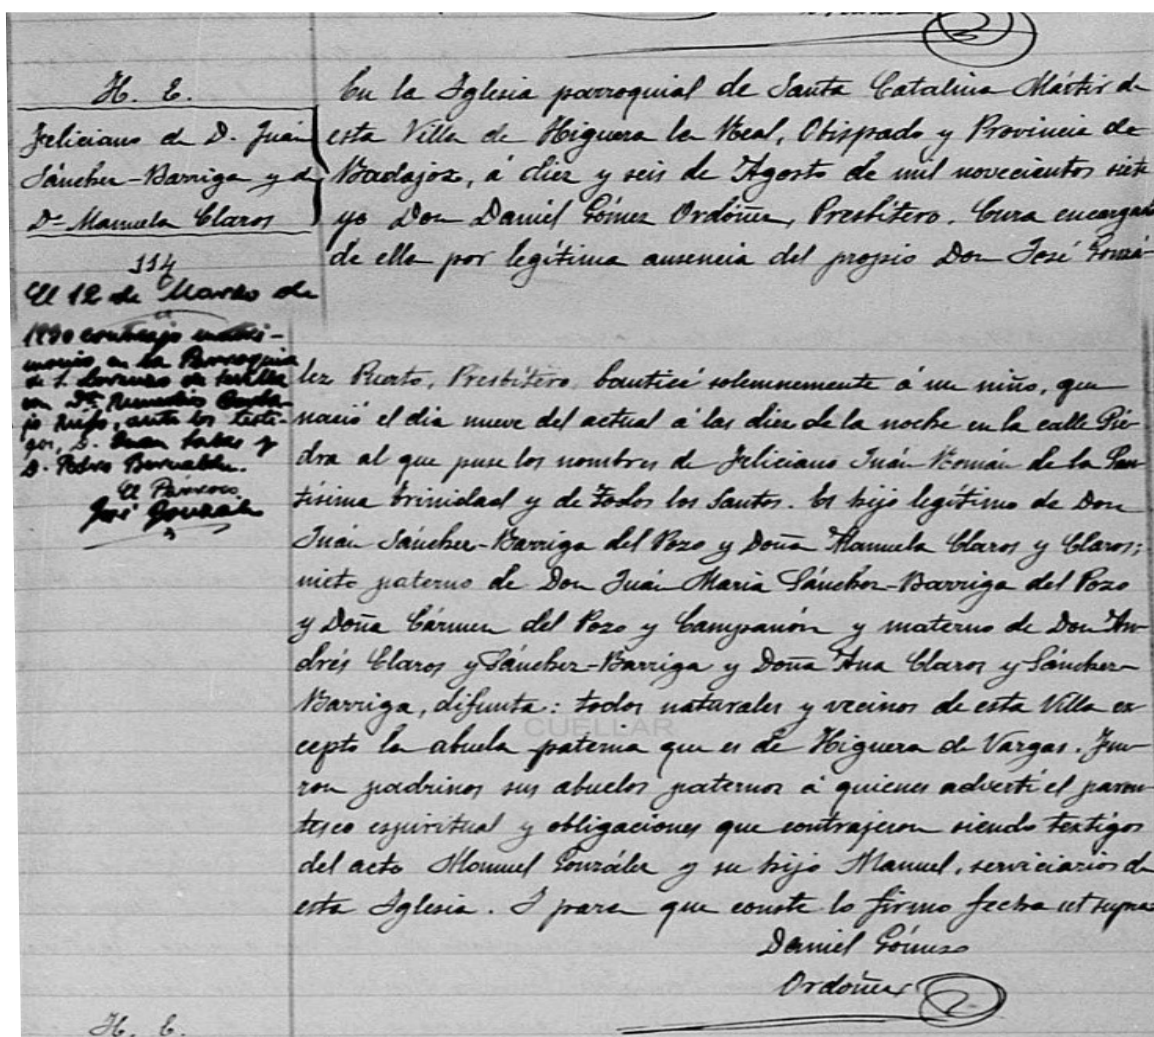 H. E.
Feliciano de D. Juán
Sánchez-Barriga y de
Dª Manuela Claros
114
El 12 de Marzo de
contrajo matri-
monio en la Parroquia
de S. Lorenzo de Sevilla
con Dª Remedios
Rufo, ante los testi-
gos, D. Juan Salas y
D. Pedro
El Párroco
José González
En la Iglesia parroquial de Santa Catalina Mártir de
esta Villa de Higuera la Real, Obispado y Provincia de
Badajoz, á diez y seis de Agosto de mil novecientos siete
yo Don Daniel Gómez Ordóñez, Presbítero, Cura encargado
de ella por legítima ausencia del propio Don José Gonzá-
lez Puerto, Presbítero, bauticé solemnemente á un niño, que
nació el dia nueve del actual á las diez de la noche en la calle Pie-
dra al que puse los nombres de Feliciano Juán Román de la San-
tísima Trinidad y de Todos los Santos. Es hijo legítimo de Don
Juán Sánchez-Barriga del Pozo y Doña Manuela Claros y Claros;
nieto paterno de Don Juán Maria Sánchez-Barriga del Pozo
y Doña Cármen del Pozo y Campanón y materno de Don An-
drés Claros y Sánchez-Barriga y Doña Ana Claros y Sánchez-
Barriga, difunta: todos naturales y vecinos de esta Villa ex-
CUELLAR
cepto la abuela paterna que es de Higuera de Vargas. Fue-
ron padrinos sus abuelos paternos á quienes advertí el paren-
tesco espiritual y obligaciones que contrajeron siendo testigos
del acto Manuel González y su hijo Manuel, serviciarios de
esta Iglesia. I para que conste lo firmo fecha ut supra
Daniel Gómez
Ordóñez
H. E.